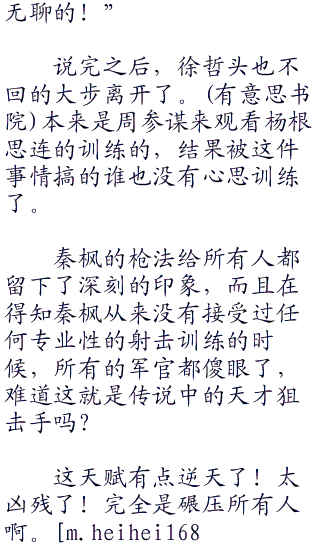 无聊的！”
说完之后，徐哲头也不
回的大步离开了。(有意思书
院)本来是周参谋来观看杨根
思连的训练的，结果被这件
事情搞的谁也没有心思训练
了。
秦枫的枪法给所有人都
留下了深刻的印象，而且在
得知秦枫从来没有接受过任
何专业性的射击训练的时
候，所有的军官都傻眼了，
难道这就是传说中的天才狙
击手吗？
这天赋有点逆天了！太
凶残了！完全是碾压所有人
啊。[m.heihei168